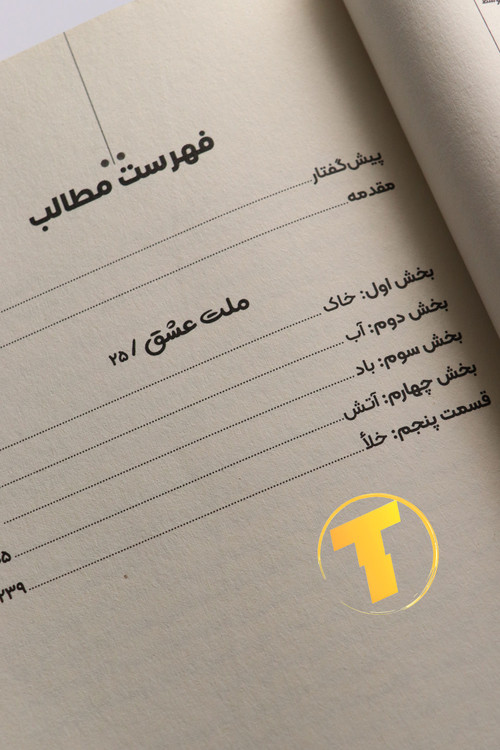 فهرست مطالب
پیش‌گفتار
مقدمه
ملت عشق / ۲۵
بخش اول: خاک
بخش دوم: آب
بخش سوم: باد
بخش چهارم: آتش
قسمت پنجم: خلأ ۲۳۹
T